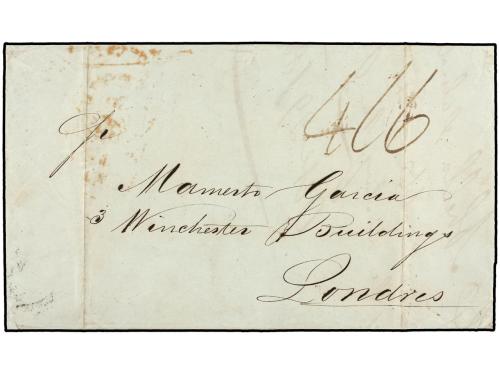 4/6
Mamerto Garcia
3 Winchester Buildings
Londres